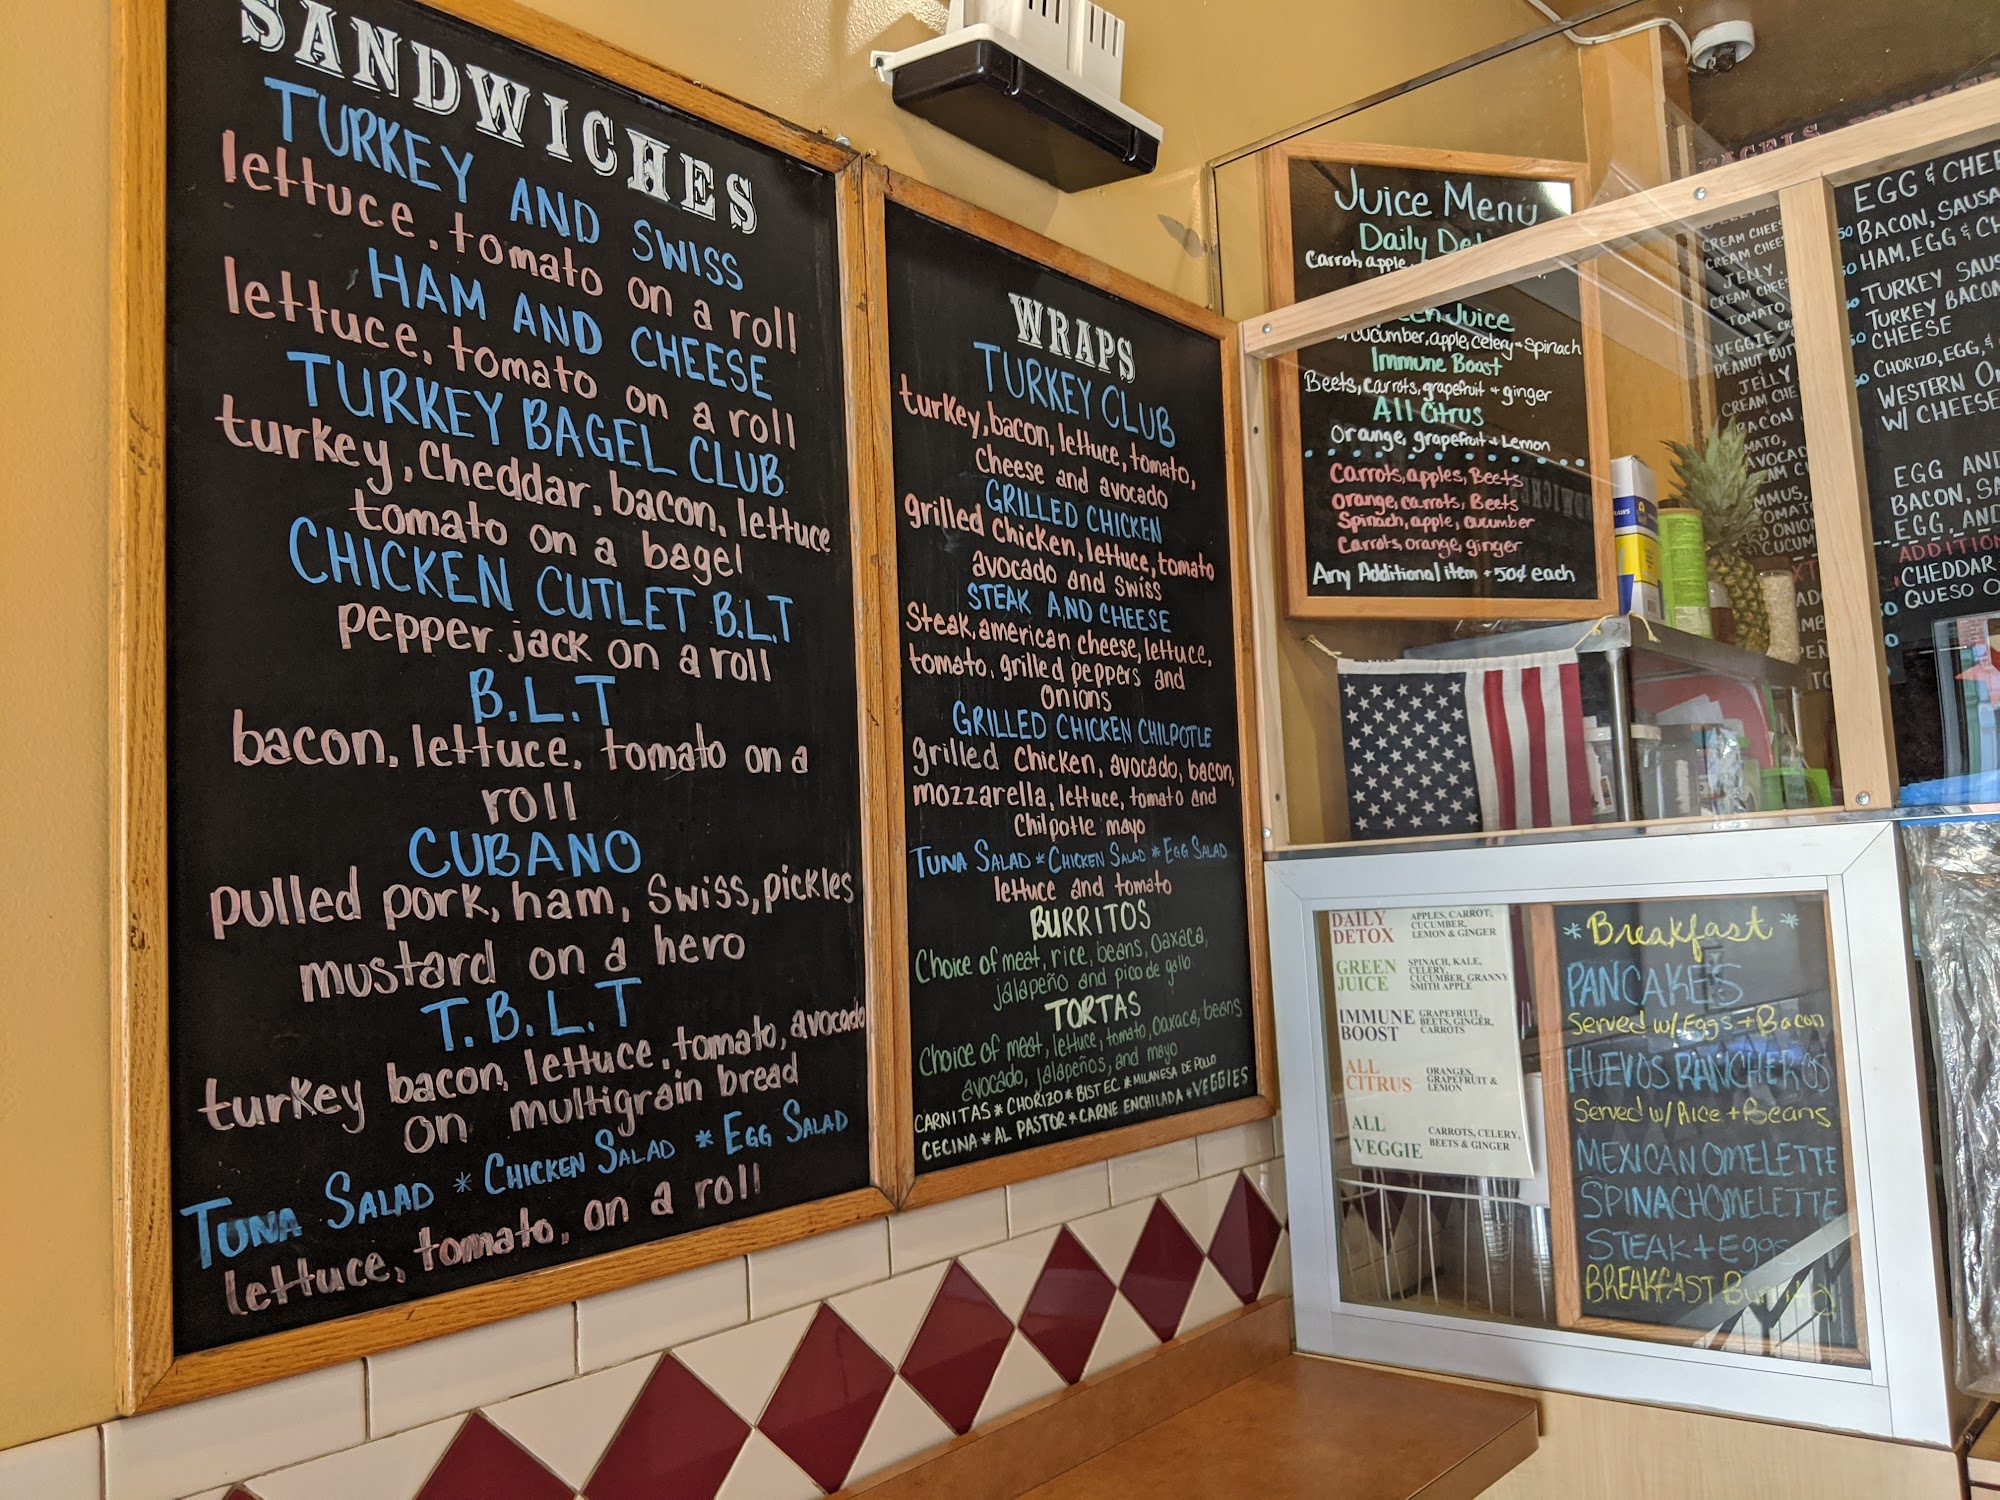 SANDWICHES
TURKEY AND SWISS
lettuce, tomato on a roll
HAM AND CHEESE
lettuce, tomato on a roll
TURKEY BAGEL CLUB
turkey, cheddar, bacon, lettuce
tomato on a bagel
CHICKEN CUTLET B.L.T
pepper jack on a roll
B.L.T
bacon, lettuce, tomato on a
roll
CUBANO
pulled pork, ham, swiss, pickles
mustard on a hero
T.B.L.T
turkey bacon, lettuce, tomato, avocado
on multigrain bread
TUNA SALAD * CHICKEN SALAD * EGG SALAD
lettuce, tomato, on a roll
WRAPS
TURKEY CLUB
turkey, bacon, lettuce, tomato,
cheese and avocado
GRILLED CHICKEN
grilled chicken, lettuce, tomato
avocado and swiss
STEAK AND CHEESE
Steak, american cheese, lettuce,
tomato, grilled peppers and
onions
GRILLED CHICKEN CHILPOTLE
grilled chicken, avocado, bacon,
mozzarella, lettuce, tomato and
Chilpotle mayo
TUNA SALAD * CHICKEN SALAD * EGG SALAD
lettuce and tomato
BURRITOS
Choice of meat, rice, beans, oaxaca,
jalapeño and pico de gallo
TORTAS
Choice of meat, lettuce, tomato, oaxaca, beans
avocado, jalapeños, and mayo
CARNITAS * CHORIZO * BISTEC * MILANESA DE POLLO
CECINA * AL PASTOR * CARNE ENCHILADA * VEGGIES
Juice Menu
Daily
Carrot, apple
Juice
cucumber, apple, celery + spinach
Immune Boast
Beets, carrots, grapefruit + ginger
All Citrus
Orange, grapefruit + Lemon
Carrots, apples, Beets
orange, carrots, Beets
Spinach, apple, cucumber
Carrots, orange, ginger
Any Additional item + 50¢ each
BAGELS
CREAM CHEESE
JELLY
TOMATO
VEGGIE
PEANUT
JELLY
CREAM
EGG & CHEE
BACON, SAUSA
HAM, EGG & CH
TURKEY SAUS
TURKEY BACON
CHEESE
CHORIZO, EGG, &
WESTERN
W/ CHEESE
EGG AND
BACON, SA
EGG, AND
ADDITION
CHEDDAR
QUESO O
DAILY DETOX
APPLES, CARROT,
CUCUMBER,
LEMON & GINGER
GREEN JUICE
SPINACH, KALE,
CELERY,
CUCUMBER, GRANNY
SMITH APPLE
IMMUNE BOOST
GRAPEFRUIT,
BEETS, GINGER,
CARROTS
ALL CITRUS
ORANGES,
GRAPEFRUIT &
LEMON
ALL VEGGIE
CARROTS, CELERY,
BEETS & GINGER
* Breakfast *
PANCAKES
Served w/ Eggs + Bacon
HUEVOS RANCHEROS
Served w/ Rice + Beans
MEXICAN OMELETTE
SPINACH OMELETTE
STEAK + Eggs
BREAKFAST Burrito